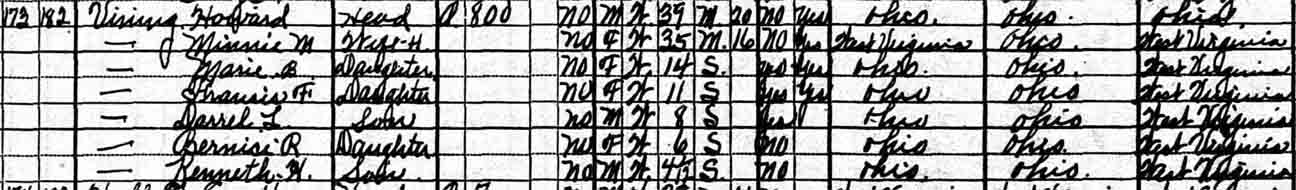 173 182 Vining Howard Head R 800 No M W 39 M 20 No Yes Ohio. Ohio. Ohio.
— Minnie M Wife-H. No F W 35 M 16 No Yes West Virginia Ohio. West Virginia
— Marie B. Daughter No F W 14 S. Yes Yes Ohio. Ohio. West Virginia
— Francis F Daughter No F W 11 S Yes Yes Ohio Ohio West Virginia
— Darrel L. Son No M W 8 S Yes Ohio Ohio West Virginia
— Bernise R Daughter No F W 6 S No Ohio Ohio. West Virginia
— Kenneth H. Son. No M W S. No Ohio. Ohio. West Virginia